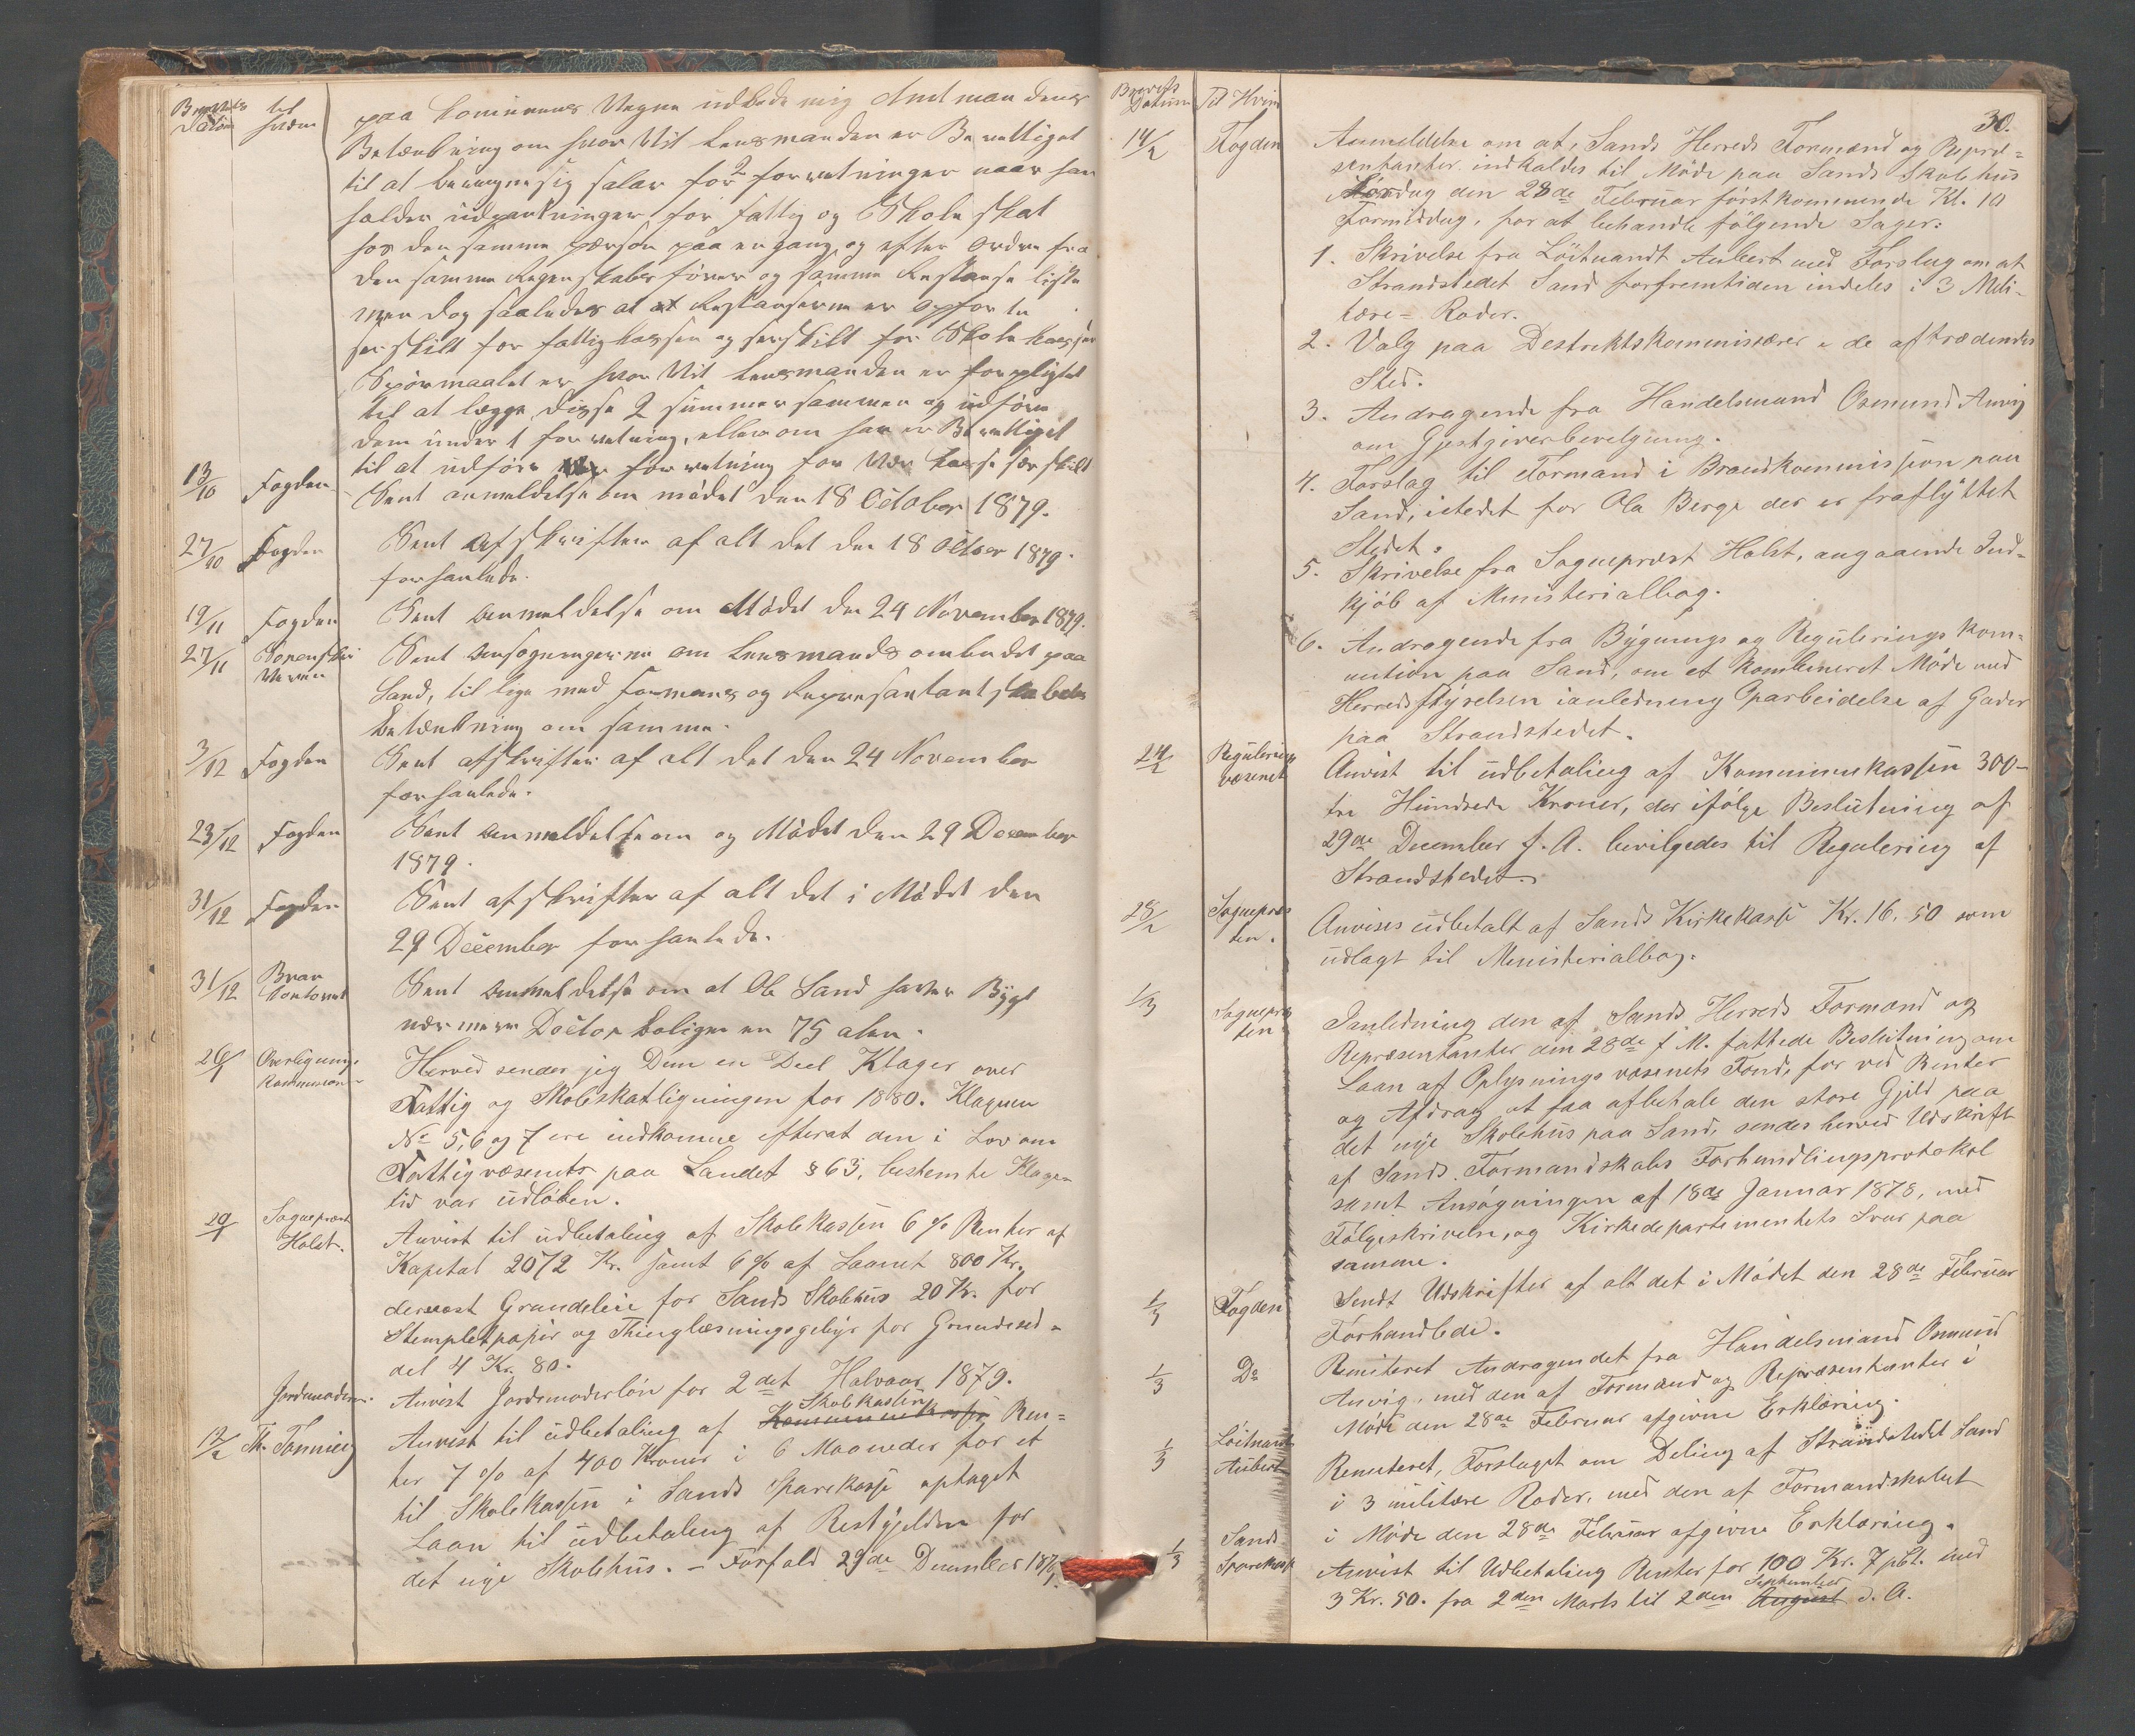 Brevets Datum
til hvem
paa Comunens Vegne udbede mig Amtmandens
Betænkning om hvor Vit Lensmanden er Berettiget
til at beregne sig salar for 2 forretninger naar han
holder udpantninger for fattig og Skole skat
hos den samme person paa en gang, og efter ordre fra
den samme Regenskabsfører og samme Restanse liste
men dog saaledes at Restanserne er opførte
serskilt for fattigkassen og serskilt for Skolekassen
Spørmaalet er hvor Vit Lensmanden er forpligtet
til at lægge disse 2 summer sammen og udføre
dem under 1 forretning, eller om han er Berettiget
til at udføre forretning for Vær kasse særskilt
13/10 Fogden Sent anmeldelse om mødet den 18 October 1879.
27/10 Fogden Sent Afskrifter af alt det den 18 Octber 1879.
forhanlede.
19/11 Fogden Sent Anmeldelse om Mødet den 24 November 1879.
27/11 Sorenskri Veren Sent Ansøgningerne om Lensmands ombudet paa
Sand, til lige med formans og Representantskabets
Betænkning om samme.
3/12 Fogden Sent afskrifter af alt det den 24 November
forhanlede.
23/12 Fogden Sent Anmeldelse om og Mødet den 29 Desember
1879.
31/12 Fogden Sent afskrifter af alt det i Mødet den
29 December forhanlede.
31/12 Bran Contoret Sent Anmeldelse om at Ole Sand haver Bygt
nærmere Doctor boligen en 75 alen.
26/1 Overligningskommisionen Herved sender jeg Dem en Deel Klager over
Fattig og Skoleskatligningen for 1880. Klagerne
No 5, 6 og 7 ere indkomne efterat den i Lov om
Fattigvæsenets paa Landet § 63, bestemte Klage
tid var udløben.
29/1 Sognepræst Holst. Anvist til udbetaling af Skolekassen 6 % Renter af
Kapital 2072 Kr. samt 6 % af Laanet 800 Kr.
dernæst Grundeleie for Sands Skolehus 20 Kr. for
Stempletpapir og Thinglæsningsgebyr for Grundesed-
del 4 Kr. 80.
Jordemoderen. Anvist Jordemoderløn for 2det Halvaar 1879.
12/2 Th. Tonning Anvist til udbetaling af Kommunekassen Skolekassen Ren-
ter 7 % af 400 Kroner i 6 Maaneder for et
til Skolekassen i Sands Sparekasse optaget
Laan til udbetaling af Restgjelden for
det nye Skolehus. – Forfald 29de December 1879.
30.
Brevets Datum
Til Hvem
14/2 Fogden Anmeldelse om at, Sands Herreds Formænd og Repræ-
sentanter indkaldes til Møde paa Sands Skolehus
Lørdag den 28de Februar førstkommende Kl. 10
Formiddag, for at behandle følgende Sager:
1. Skrivelse fra Løitnandt Aubert med Forslag om at
Strandstedet Sand forfremtiden indeles i 3 Mili-
tære-Roder.
2. Valg paa Destriktskommissærer i de aftrædendes
Sted.
3. Andragende fra Handelsmand Osmund Anvig
om Gjestgiverbevelgning.
4. Forslag til Formand i Brandkommission paa
Sand, istedet for Ola Berge der er fraflyttet
Stedet.
5. Skrivelse fra Sognepræst Holst, angaaende Ind-
kjøb af Ministerialbog.
6. Andragende fra Bygnings og Regulerings kom-
mition paa Sand, om et kombeneret Møde med
Herredsstyrelsen ianledning Oparbeidelse af Gader
paa Strandstedet.
24/2 Regulerings væsenet Anvist til udbetaling af Kommunekassen 300-
tre Hundrede Kroner, der ifølge Beslutning af
29de December f. A. bevilgedes til Regulering af
Strandstedet.
28/2 Sognepræsten. Anvises udbetalt af Sands Kirkekasse Kr. 16,50 som
udlagt til Ministerialbog.
1/3 Sognepræsten Ianledning den af Sands Herreds Formænd og
Repræsentanter den 28de f. M. fattede Beslutning om
Laan af Oplysningsvæsenets Fond, for ved Renter
og Afdrag at faa afbetale den store Gjeld paa
det nye Skolehus paa Sand, sendes herved Udskrift
af Sands Formandskabs Forhandlingsprotokol
samt Ansøgningen af 18de Januar 1878, med
Følgeskrivelse, og Kirkedepartementets Svar paa
samme.
1/3 Fogden Sendt Udskrifter af alt det i Mødet den 28de Februar
Forhandlede.
1/3 Do Remiteret Andragendet fra Handelsmand Osmund
Anvig, med den af Formænd og Repræsentanter i
Møde den 28de Februar afgivne Erklæring.
1/3 Løitnandt Aubert Remiteret, Forslaget om Deling af Strandstedet Sand
i 3 militære Roder, med den af Formandskabet
i Møde den 28de Februar afgivne Erklæring.
1/3 Sands Sparekasse Anvist til Udbetaling Renter for 100 Kr. 7 pCt. med
3 Kr. 50. fra 2den Marts til 2den August September d. A.